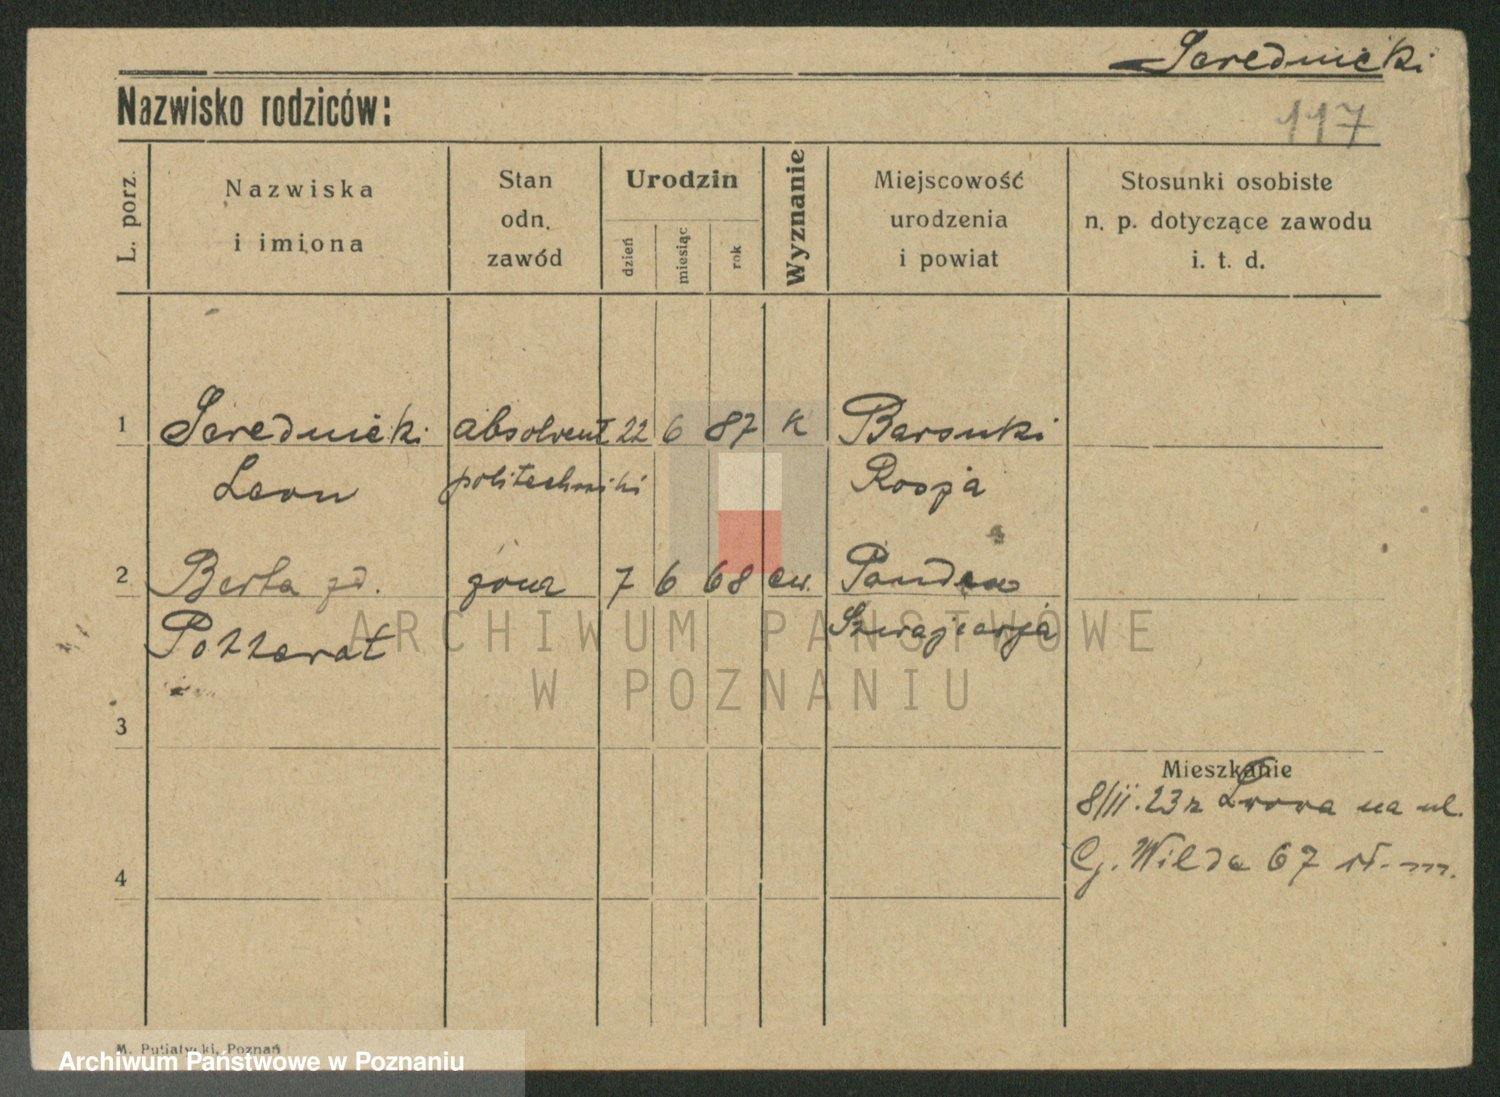 Serednicki
Nazwisko rodziców:
117
L. porz.
Nazwiska
i imiona
Stan
odn.
zawód
Urodzin
dzień
miesiąc
rok
Wyznanie
Miejscowość
urodzenia
i powiat
Stosunki osobiste
n. p. dotyczące zawodu
i. t. d.
1 Serednicki absolvent 22 6 87 k Barsuki
Leon politechniki Rosja
2 Berta zd. żona 7 6 68 ew.
Szwajcarja
3
Mieszkanie
8/II. 23 z Lwowa na ul.
G. Wilda 67
4
M. Putiatycki, Poznań
ARCHIWUM PAŃSTWOWE
W POZNANIU
Archiwum Państwowe w Poznaniu